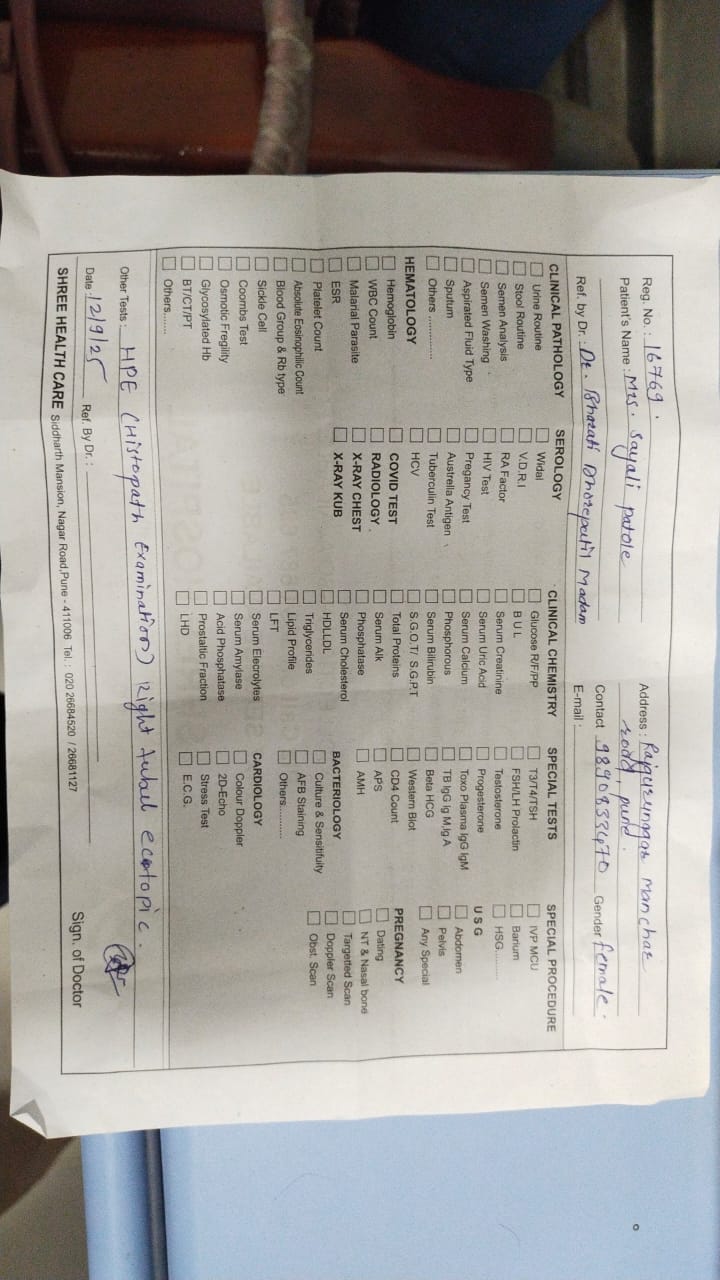 Reg. No.: 16769.
Patient's Name : Mrs. Sayali patole
Address : Rajgurunagar Manchar
road, pune.
Contact 9890833470 Gender female.
Ref. by Dr.: Dr. Bharati Dhorepatil Madam
E-mail :
CLINICAL PATHOLOGY
Urine Routine
Stool Routine
Semen Analysis
Semen Washing
Aspirated Fluid Type
Sputum
Others ..............
HEMATOLOGY
Hemoglobin
WBC Count
Malarial Parasite
ESR
Platelet Count
Absolute Eosinophilic Count
Blood Group & Rb type
Sickle Cell
Coombs Test
Osmotic Fregility
Glycosylated Hb
BT/CT/PT
Others.......
SEROLOGY
Widal
V.D.R.I
RA Factor
HIV Test
Pregancy Test
Australia Antigen
Tuberculin Test
HCV
COVID TEST
RADIOLOGY
X-RAY CHEST
X-RAY KUB
CLINICAL CHEMISTRY
Glucose R/F/PP
B U L
Serum Creatinine
Serum Uric Acid
Serum Calcium
Phosphorous
Serum Bilirubin
S.G.O.T/ S.G.P.T
Total Proteins
Serum Alk
Phosphatase
Serum Cholesterol
HDLLDL
Triglycerides
Lipid Profile
LFT
Serum Elecrolytes
Serum Amylase
Acid Phosphatase
Prostaltic Fraction
LHD
SPECIAL TESTS
T3/T4/TSH
FSH/LH Prolactin
Testosterone
Progesterone
Toxo Plasma IgG IgM
TB IgG Ig M,Ig A
Beta HCG
Western Blot
CD4 Count
APS
AMH
BACTERIOLOGY
Culture & Sensitifuity
AFB Staining
Others...........
CARDIOLOGY
Colour Doppler
2D-Echo
Stress Test
E.C.G.
SPECIAL PROCEDURE
IVP MCU
Barium
HSG..........
U S G
Abdomen
Pelvis
Any Special
PREGNANCY
Dating
NT & Nasal bone
Targetted Scan
Doppler Scan
Obst. Scan
Other Tests HPE (Histopath Examination) Right tubal ecotopic.
Date : 12/9/25 Ref. By Dr. :
Sign. of Doctor
SHREE HEALTH CARE Siddharth Mansion, Nagar Road,Pune - 411006 Tel. : 020 26684520 / 26681127